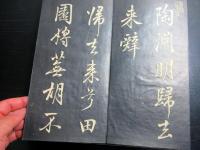 陶淵明歸去
来辭
歸去来兮田
園將蕪胡不